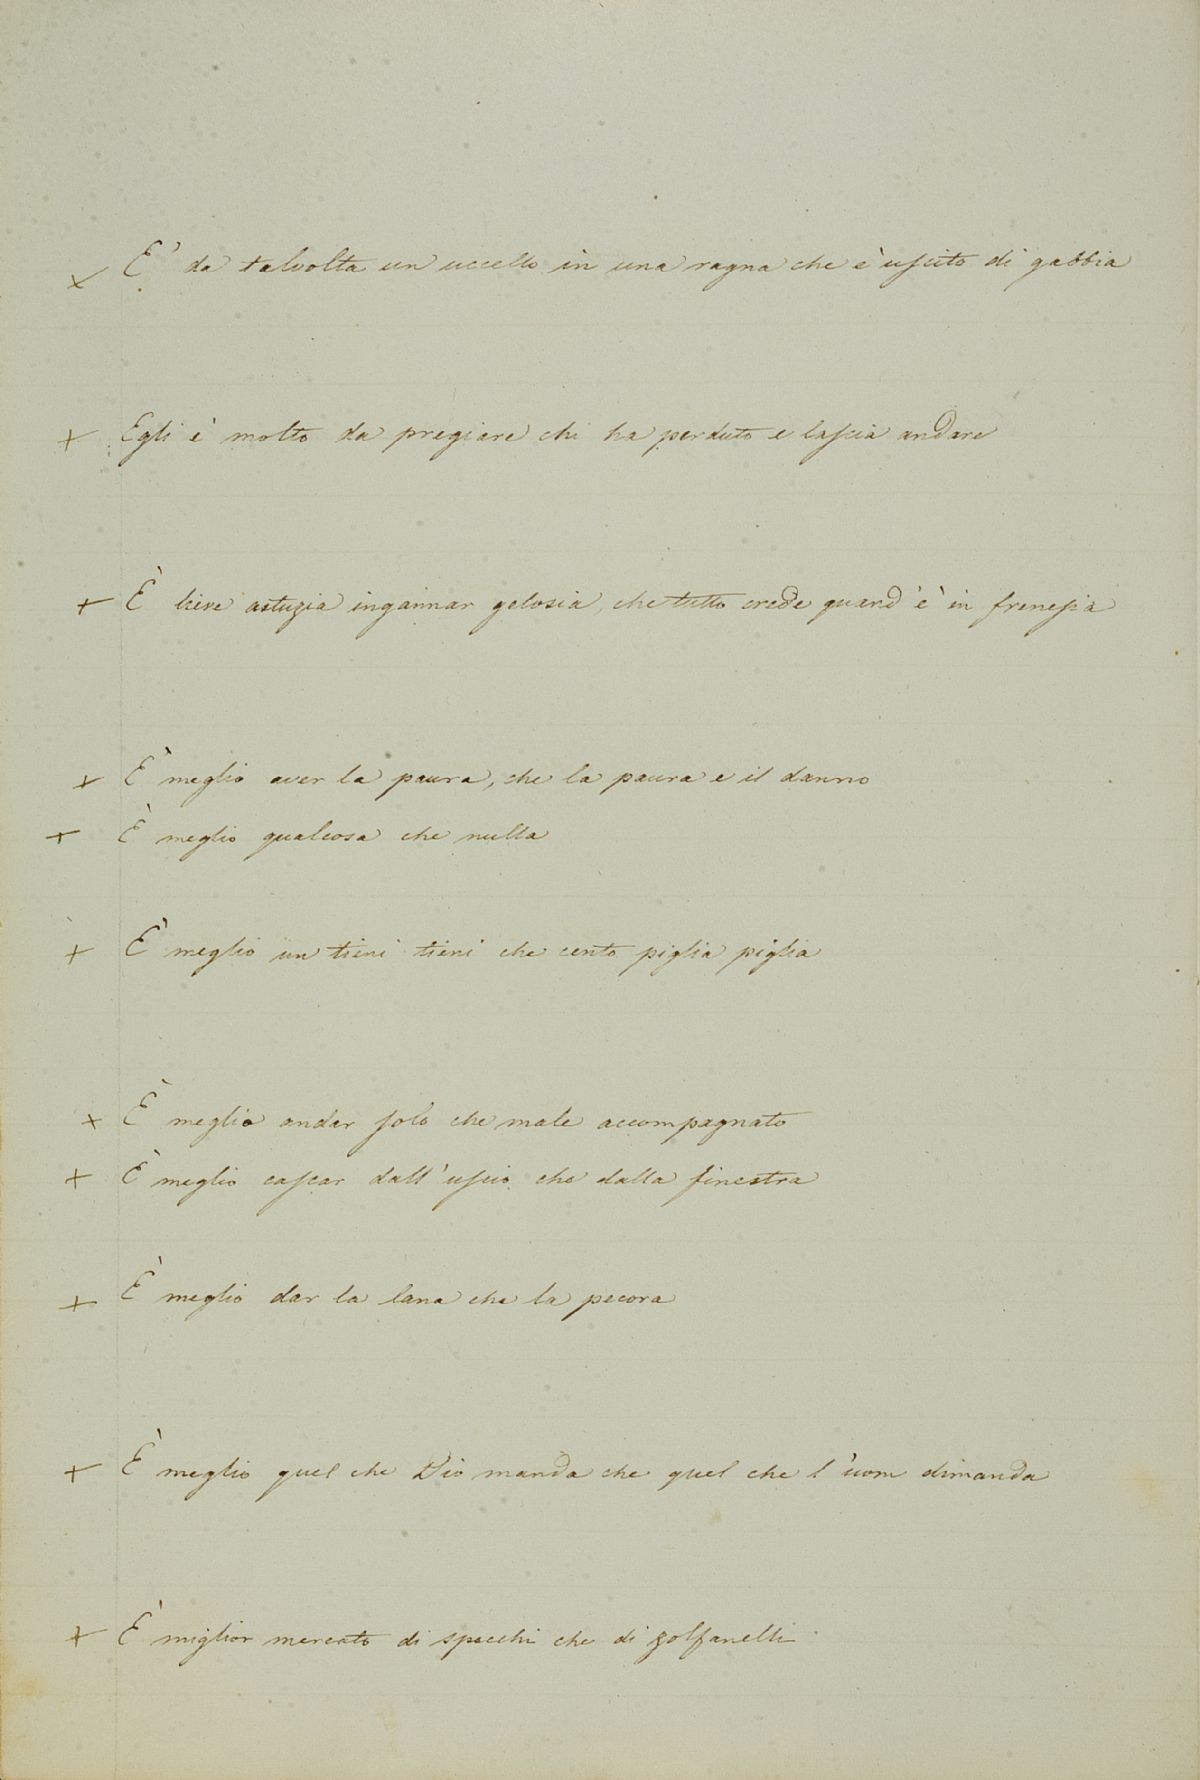 × E' da talvolta un uccello in una ragna che è uscito di gabbia
× Egli è molto da pregiare chi ha perduto e lascia andare
× È lieve astuzia ingannar gelosia, che tutto crede quand'è in frenesia
× È meglio aver la paura, che la paura e il danno
× È meglio qualcosa che nulla
× È meglio un tieni tieni che cento piglia piglia
× È meglio andar solo che male accompagnato
× È meglio cascar dall'uscio che dalla finestra
× È meglio dar la lana che la pecora
× È meglio quel che Dio manda che quel che l'uom dimanda
× È miglior mercato di specchi che di zolfanelli